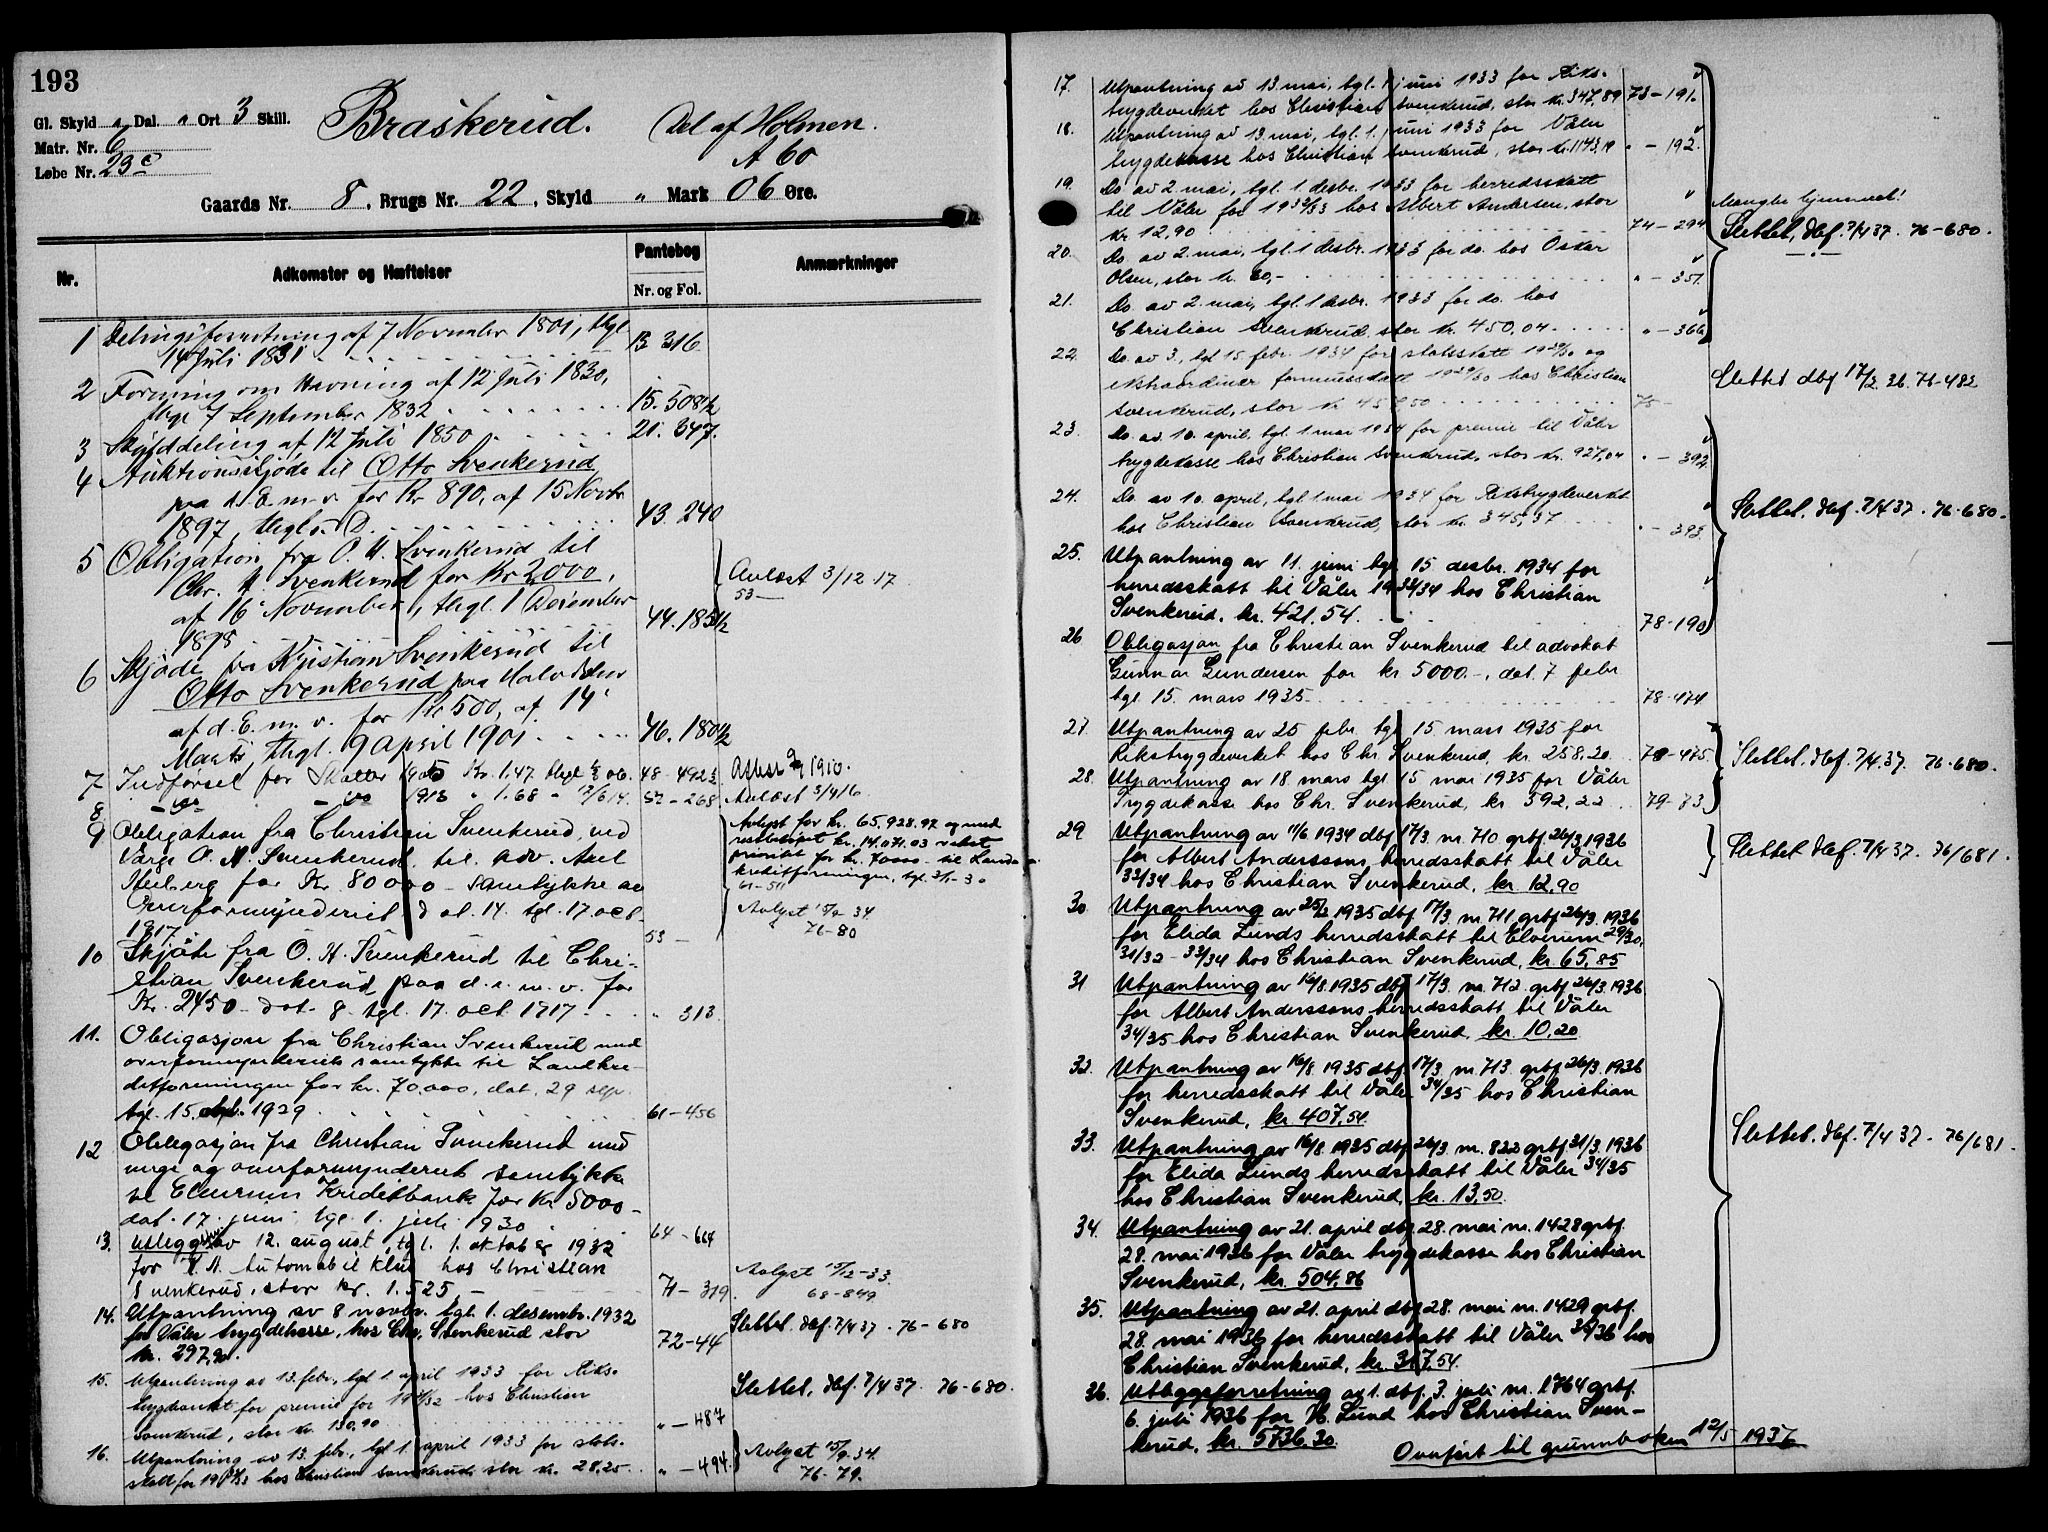 193
Gl. Skyld " Dal. " Ort 3 Skill.
Matr. Nr. 6
Løbe Nr. 23 c
Braskerud.
Del af Holmen.
A 60
Gaards Nr. 8, Brugs Nr. 22, Skyld " Mark 06 Øre.
Nr. Adkomster og Hæftelser Pantebog Anmærkninger
Nr. og Fol.
1 Delingsforretning af 7 November 1801, thgl.
14 Juli 1831 13 316
2 Forening om Havning af 12 Juli 1830,
thgl 7 September 1832 15. 508 1/2
3 Skylddeling af 12 Juli 1850 21. 347.
4 Auktionsskjøde til Otto Svenkerud
paa d. E. m. v. for Kr 890, af 15 Novbr
1897, thgl s. D. 43. 240
5 Obligation fra O. H. Svenkerud til
Chr. H. Svenkerud for Kr 2000,
af 16 November, thgl. 1 December
1898 44. 185 1/2
Avlæst 3/12 17
53 —
6 Skjøde fra Kristian Svenkerud til
Otto Svenkerud paa Halvdelen
af d. E. m. v. for Kr 500, af 14
Marts, thgl. 9 April 1901 46. 180 1/2
7 Indførsel for Skatter 1905 Kr. 1.47 thgl 06. 48 - 492 Aflæst 1910.
8 - do - - do 1913 " 1.68 " 17/6 14. 52 - 268 Avlæst 3/4 16
9 Obligation fra Christian Svenkerud, ved
Værge O. H. Svenkerud, til adv. Axel
for Kr. 80000 - samtykke av
Overformynderiet dat. 14. tgl. 17. oct.
1917. 53 -
Avlyst for kr. 65.928.97 og med
restbeløpet kr. 14.071.03 veket
prioritet for kr. 70000 - til Lands-
kreditforeningen, tgl. 3/1-30
61-511
Avlyst 15/9 34
76-80
10 Skjøte fra O. H. Svenkerud til Chri-
stian Svenkerud paa d. e. m. v. for
Kr. 2450 - dat. 8 tgl. 17. oct. 1917 " 313.
11. Obligasjon fra Christian Svenkerud med
overformynderiets samtykke til Landkre-
ditforeningen for kr. 70.000, dat. 29 sep.
tgl. 15. 1929 61-456
12 Obligasjon fra Christian Svenkerud med
verge og overformynderiets samtykke
til Elverum Kreditbank for Kr 5000 -
dat. 17. juni, tgl. 1. juli 1930 64-664
13. Utlegg av 12. august, tgl. 1. oktober 1932
for K. N. Automobilklub hos Christian
Svenkerud, stor kr. 1.525,- 71-319.
Avlyst 15/12-33.
68-849
14. Utpantning av 8 novbr. tgl. 1. desembr. 1932
for Våler trygdekasse, hos Chr. Svenkerud stor
kr. 297,90. 72-44
Slettet, dbf. 7/4 37. 76-680
15. Utpantning av 13. febr., tgl. 1. april 1933 for Riks-
trygdverket for premie for 1931/32 hos Christian
Svenkerud, stor kr. 130,90 " - 487
Slettet, dbf. 7/4 37. 76-680.
16. Utpantning av 13. febr., tgl. 1. april 1933 for stats-
skatt for hos Christian Svenkerud, stor kr. 28,25. " - 494.
Avlyst 15/9. 34.
76-79.
17. Utpantning av 13. mai, tgl. 1. juni 1933 for Riks-
trygdeverket hos Christian Svenkerud, stor kr. 347,89 73-191.
18. Utpantning av 13. mai, tgl. 1. juni 1933 for Våler
trygdekasse hos Christian Svenkerud, stor kr. 1143,19 " - 192.
19. Do av 2. mai, tgl. 1 desbr. 1933 for herredsskatt
til Våler for 1932/33 hos Albert Andersen, stor
kr 12,90 74-294
Mangler hjemmel!
Slettet, dbf. 7/4 37. 76-680.
20. Do. av 2. mai, tgl. 1 desbr. 1933 for do. hos Oskar
Olsen, stor kr. 20,- " - 351.
21. Do. av 2. mai, tgl. 1 desbr. 1933 for do. hos
Christian Svenkerud stor kr. 450,04 " - 366
22. Do. av 3, tgl 15. febr. 1934 for statsskatt 1929/30 og
ekstraordinær formuesskatt 1929/30 hos Christian
Svenkerud, stor kr 457,50 75 -
Slettet dbf 17/2 36. 71-482
23. Do. av. 10. april, tgl. 1 mai 1934 for premie til Våler
trygdekasse hos Christian Svenkerud, stor kr. 927,04 " - 392.
24. Do. av 10. april, tgl. 1 mai 1934 for Rikstrygdeverket
hos Christian Svenkerud, stor kr. 345,37 " - 393.
Slettet. dbf. 7/4 37. 76-680.
25. Utpantning av 11. juni tgl. 15 desbr. 1934 for
herredsskatt til Våler 1933/34 hos Christian
Svenkerud, kr. 421.54. 78-190
26 Obligasjon fra Christian Svenkerud til advokat
Gunnar Gundersen for kr 5000.-, dat. 7 febr
tgl 15. mars 1935. 78-474
27. Utpantning av 25 febr. tgl. 15. mars 1935 for
Rikstrygdeverket hos Chr. Svenkerud, kr. 258,20 78-475.
Slettet. dbf. 7/4 37. 76-680.
28. Utpantning av 18 mars tgl 15 mai 1935 for Våler
Trygdekasse hos Chr. Svenkerud, kr 592,22 79-73.
29 Utpantning av 11/6 1934 dbf 17/3. nr. 710 grbf. 26/3 1936
for Albert Anderssons herredsskatt til Våler
33/34 hos Christian Svenkerud, kr. 12,90
Slettet dbf. 7/4 37. 76/681.
30. Utpantning av 25/2 1935 dbf 17/3. nr 711 grbf 26/3. 1936
for Elida Lunds herredsskatt til Elverum 29/30,
31/32 - 33/34 hos Christian Svenkerud, kr. 65,85
31 Utpantning av 16/8. 1935 dbf 17/3. nr. 712 grbf 26/3. 1936
for Albert Anderssons herredsskatt til Våler
34/35 hos Christian Svenkerud, kr. 10,20
32. Utpantning av 16/8. 1935 dbf. 17/3. nr. 713. grbf 26/3. 1936
for herredsskatt til Våler 34/35 hos Christian
Svenkerud, kr 407,54.
33. Utpantning av 16/8. 1935 dbf 26/3. nr. 822 grbf 31/3. 1936
for Elida Lunds herredsskatt til Våler 34/35
hos Christian Svenkerud, kr. 13,50.
Slettet. dbf. 7/4 37. 76/681.
34. Utpantning av 21. april dbf 28. mai nr. 1428 grbf.
28. mai 1936 for Våler trygdekasse hos Christian
Svenkerud, kr. 504,86
35. Utpantning av 21. april dbf 28. mai nr. 1429 grbf.
28. mai 1936 for herredsskatt til Våler 35/36 hos
Christian Svenkerud, kr. 317,54.
36. Utleggsforretning av 1. dbf. 3. juli nr. 1764 grbf.
6. juli 1936 for H. Lund hos Christian Sven-
kerud, kr. 5736.30.
Overført til grunnboken 12/5 1937